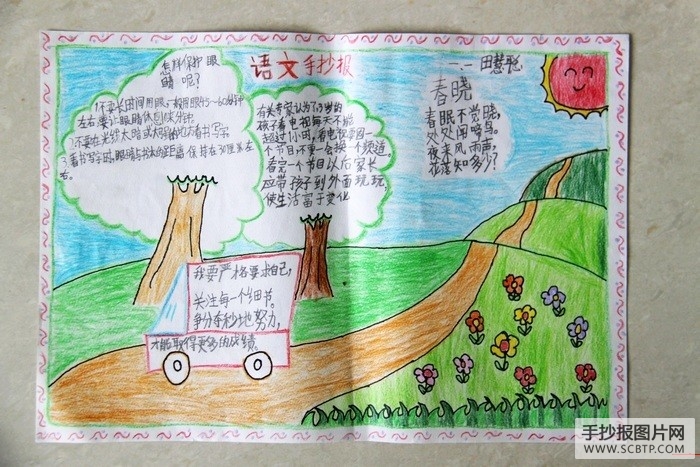 语文手抄报
一.一 田慧聪
怎样保护眼
睛呢?
1.不要长时间用眼,一般用眼45-60分钟
左右要让眼睛休息10来分钟。
2.不要在光线太暗或太强的地方看书写字
3.看书写字时,眼睛与书本的距离保持在30厘米左
右。
有关专家认为7-9岁的
孩子看电视每天不能
超过1小时,看电视时看一
个节目,不要一会换一个频道。
看完一个节目以后家长
应带孩子到外面玩玩,
使生活富于变化
春晓
春眠不觉晓,
处处闻啼鸟。
夜来风雨声,
花落知多少?
我要严格要求自己,
关注每一个细节。
争分夺秒地努力,
才能取得更多的成绩。
手抄报图片网
WWW.SCBTP.COM